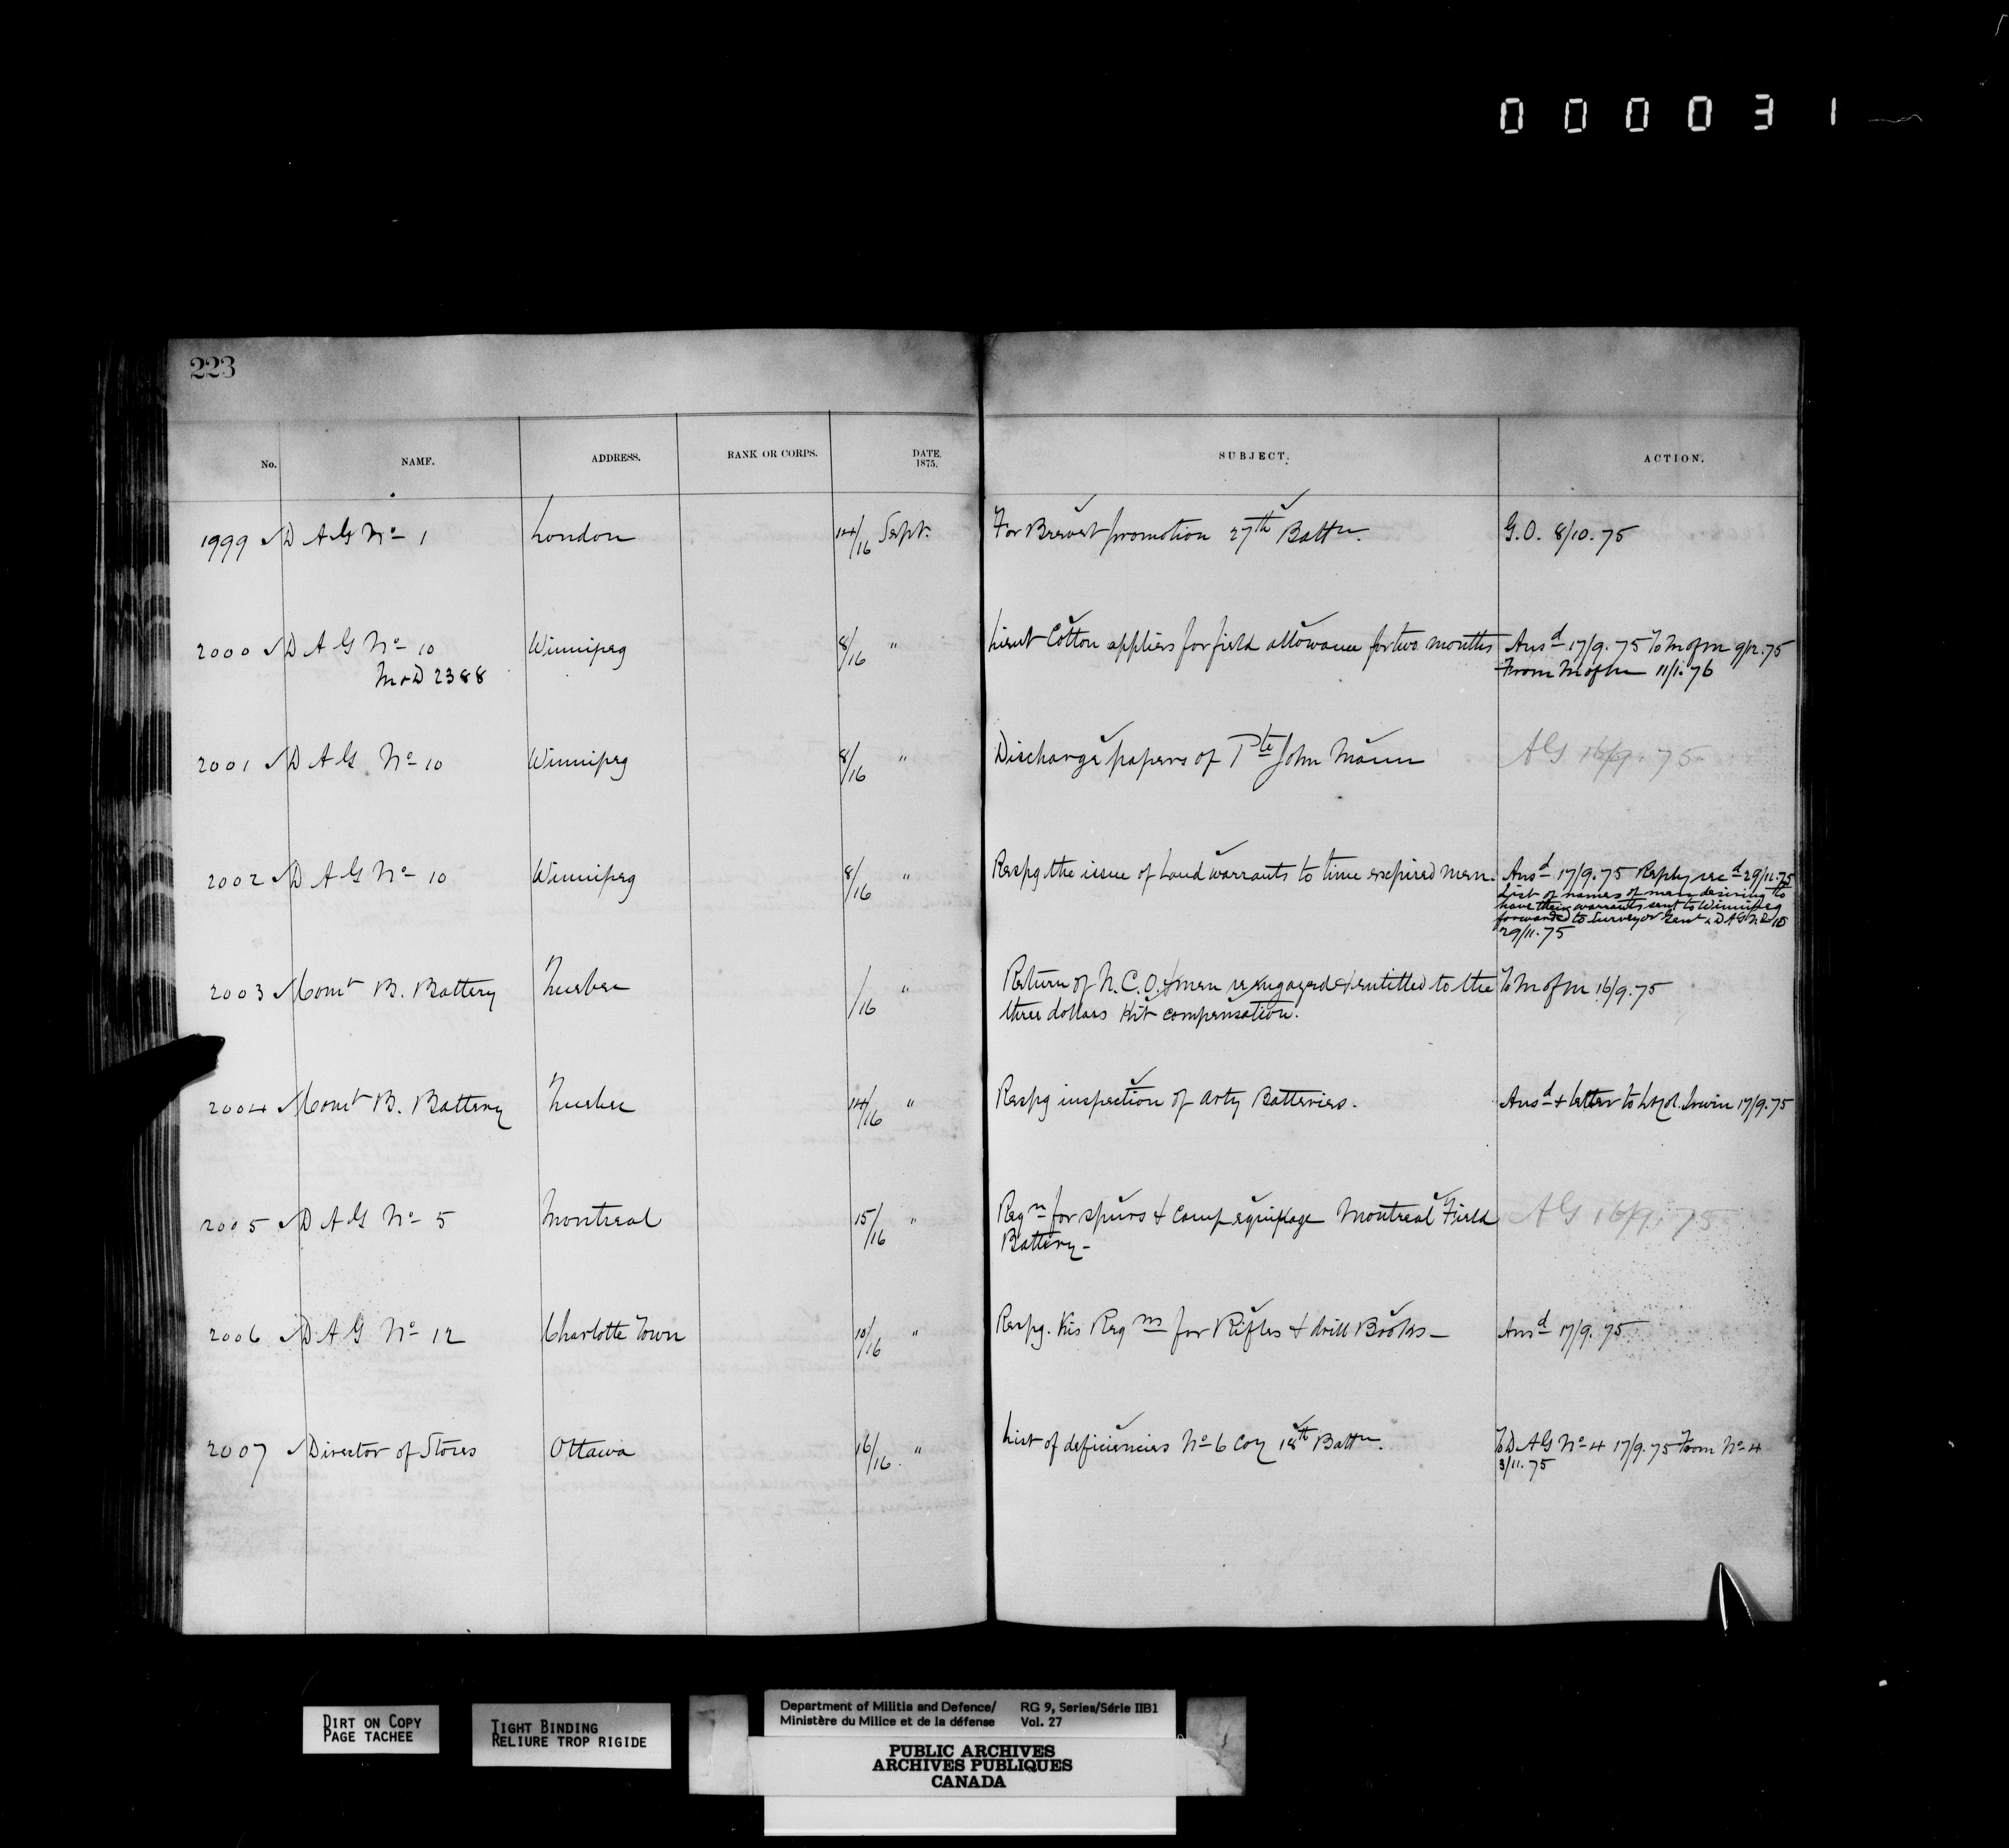 000031
223
No. NAME. ADDRESS. RANK OR CORPS. DATE. 1875. SUBJECT. ACTION.
1999 D A G No 1 London 14/16 Sept. For Brevet promotion 27th Battn. G.O. 8/10.75
2000 D A G No 10 Winnipeg 8/16 " Lieut Cotton applies for field allowance for two months Ansd 17/9.75 To M of M 9/12.75
M & D 2388 From M of M 11/1.76
2001 D A G No 10 Winnipeg 8/16 " Discharge papers of Pte John Mann AG 16/9.75
2002 D A G No 10 Winnipeg 8/16 " Respg the issue of Land warrants to time expired men. Ansd 17/9.75 Reply recd 29/11.75
List of names of men desiring to
have their warrants sent to Winnipeg
forwarded to Surveyor Genl & D A G No 10
29/11.75
2003 Comt B. Battery Quebec /16 " Return of N.C.O. & men reengaged & entitled to the To M of M 16/9.75
three dollars Kit compensation.
2004 Comt B. Battery Quebec 14/16 " Respg inspection of Arty Batteries. Ansd & letter to Lt Col. Irwin 17/9.75
2005 D A G No 5 Montreal 15/16 " Reqn for spurs & camp equipage Montreal Field AG 16/9.75
Battery-
2006 D A G No 12 Charlotte Town 10/16 " Respg. his Reqns for Rifles & drill Books- Ansd 17/9.75
2007 Director of Stores Ottawa 16/16 " List of deficiencies No 6 Coy 18th Battn. To D A G No 4 17/9.75 From No 4
3/11.75
DIRT ON COPY
PAGE TACHEE
TIGHT BINDING
RELIURE TROP RIGIDE
Department of Militia and Defence/ RG 9, Series/Série IIB1
Ministère du Milice et de la défense Vol. 27
PUBLIC ARCHIVES
ARCHIVES PUBLIQUES
CANADA